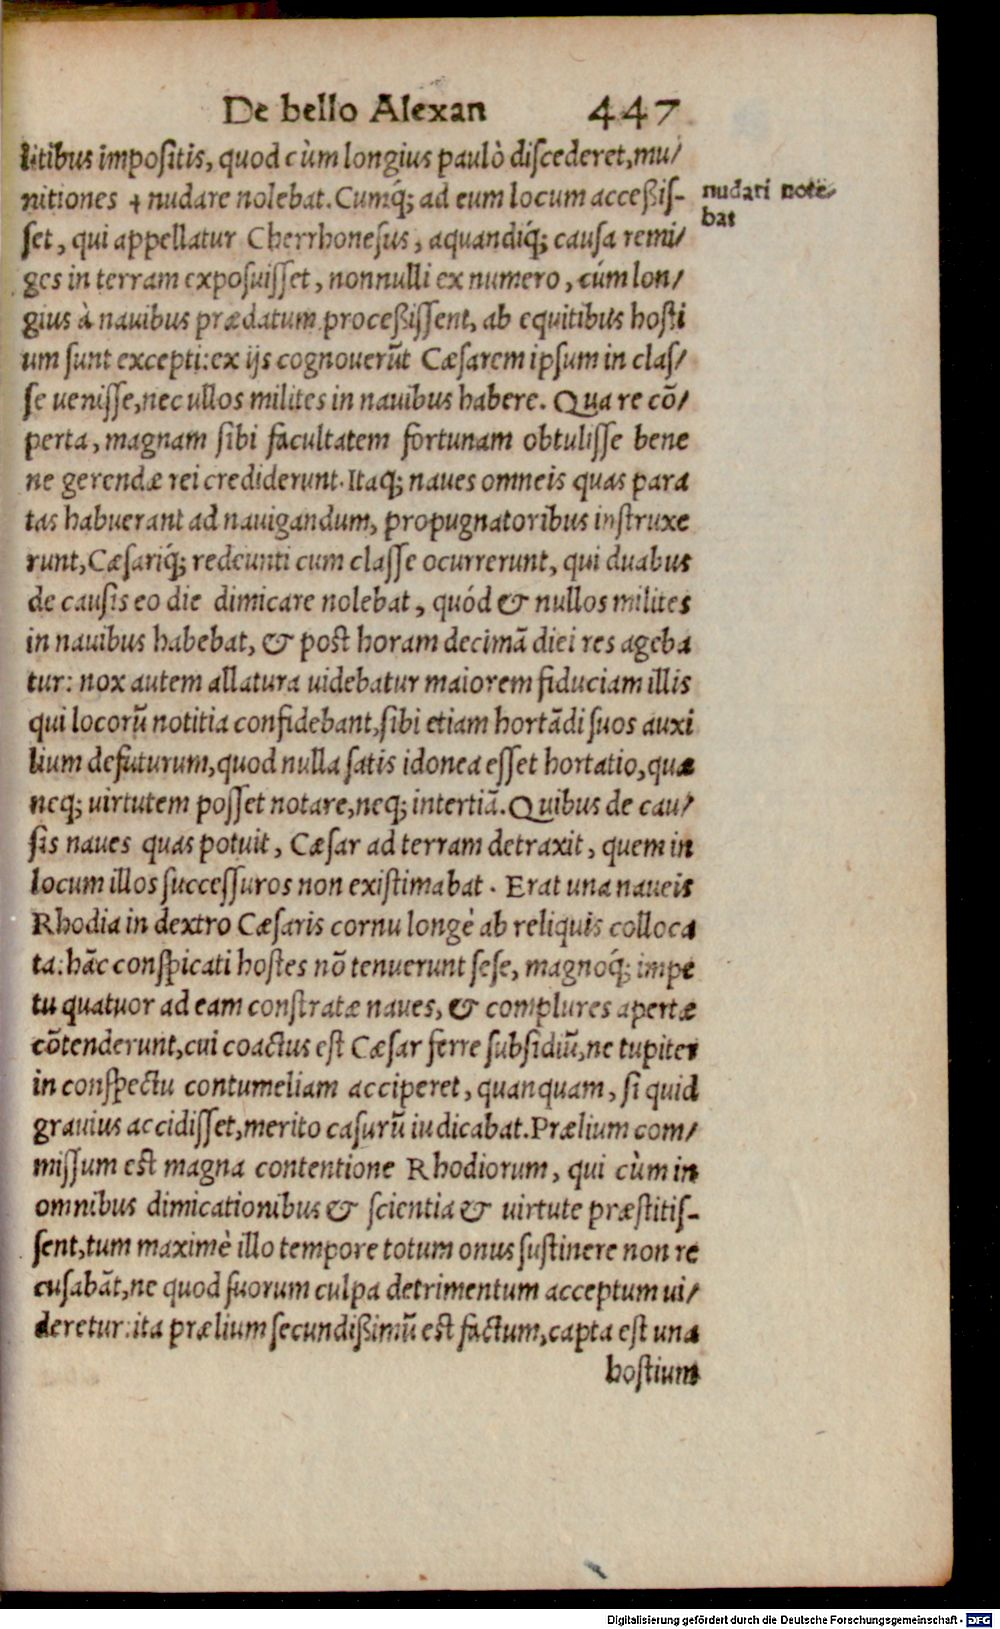 De bello Alexan 447
litibus impositis, quod cùm longius paulò discederet, mu/
nitiones ✝ nudare nolebat. Cumq́; ad eum locum acceßis-
set, qui appellatur Cherrhonesus, aquandiq́; causa remi/
ges in terram exposuisset, nonnulli ex numero, cúm lon/
gius à nauibus prædatum proceßissent, ab equitibus hosti
um sunt excepti: ex ijs cognouerũt Cæsarem ipsum in clas/
se uenisse, nec ullos milites in nauibus habere. Qua re cõ/
perta, magnam sibi facultatem fortunam obtulisse bene
ne gerendæ rei crediderunt. Itaq; naues omneis quas para
tas habuerant ad nauigandum, propugnatoribus instruxe
runt, Cæsariq́; redeunti cum classe ocurrerunt, qui duabus
de causis eo die dimicare nolebat, quód & nullos milites
in nauibus habebat, & post horam decimã diei res ageba
tur: nox autem allatura uidebatur maiorem fiduciam illis
qui locorũ notitia confidebant, sibi etiam hortãdi suos auxi
lium defuturum, quod nulla satis idonea esset hortatio, quæ
neq; uirtutem posset notare, neq; intertiã. Quibus de cau/
sis naues quas potuit, Cæsar ad terram detraxit, quem in
locum illos successuros non existimabat. Erat una naueis
Rhodia in dextro Cæsaris cornu longè ab reliquis colloca
ta: hãc conspicati hostes nõ tenuerunt sese, magnoq́; impe
tu quatuor ad eam constratæ naues, & complures apertæ
cõtenderunt, cui coactus est Cæsar ferre subsidiũ, ne tupiter
in conspectu contumeliam acciperet, quanquam, si quid
grauius accidisset, merito casurũ iudicabat. Prælium com/
missum est magna contentione Rhodiorum, qui cùm in
omnibus dimicationibus & scientia & uirtute præstitis-
sent, tum maximè illo tempore totum onus sustinere non re
cusabãt, ne quod suorum culpa detrimentum acceptum ui/
deretur: ita prælium secundißimũ est factum, capta est una
hostium
nudari nole-
bat
Digitalisierung gefördert durch die Deutsche Forschungsgemeinschaft - DFG